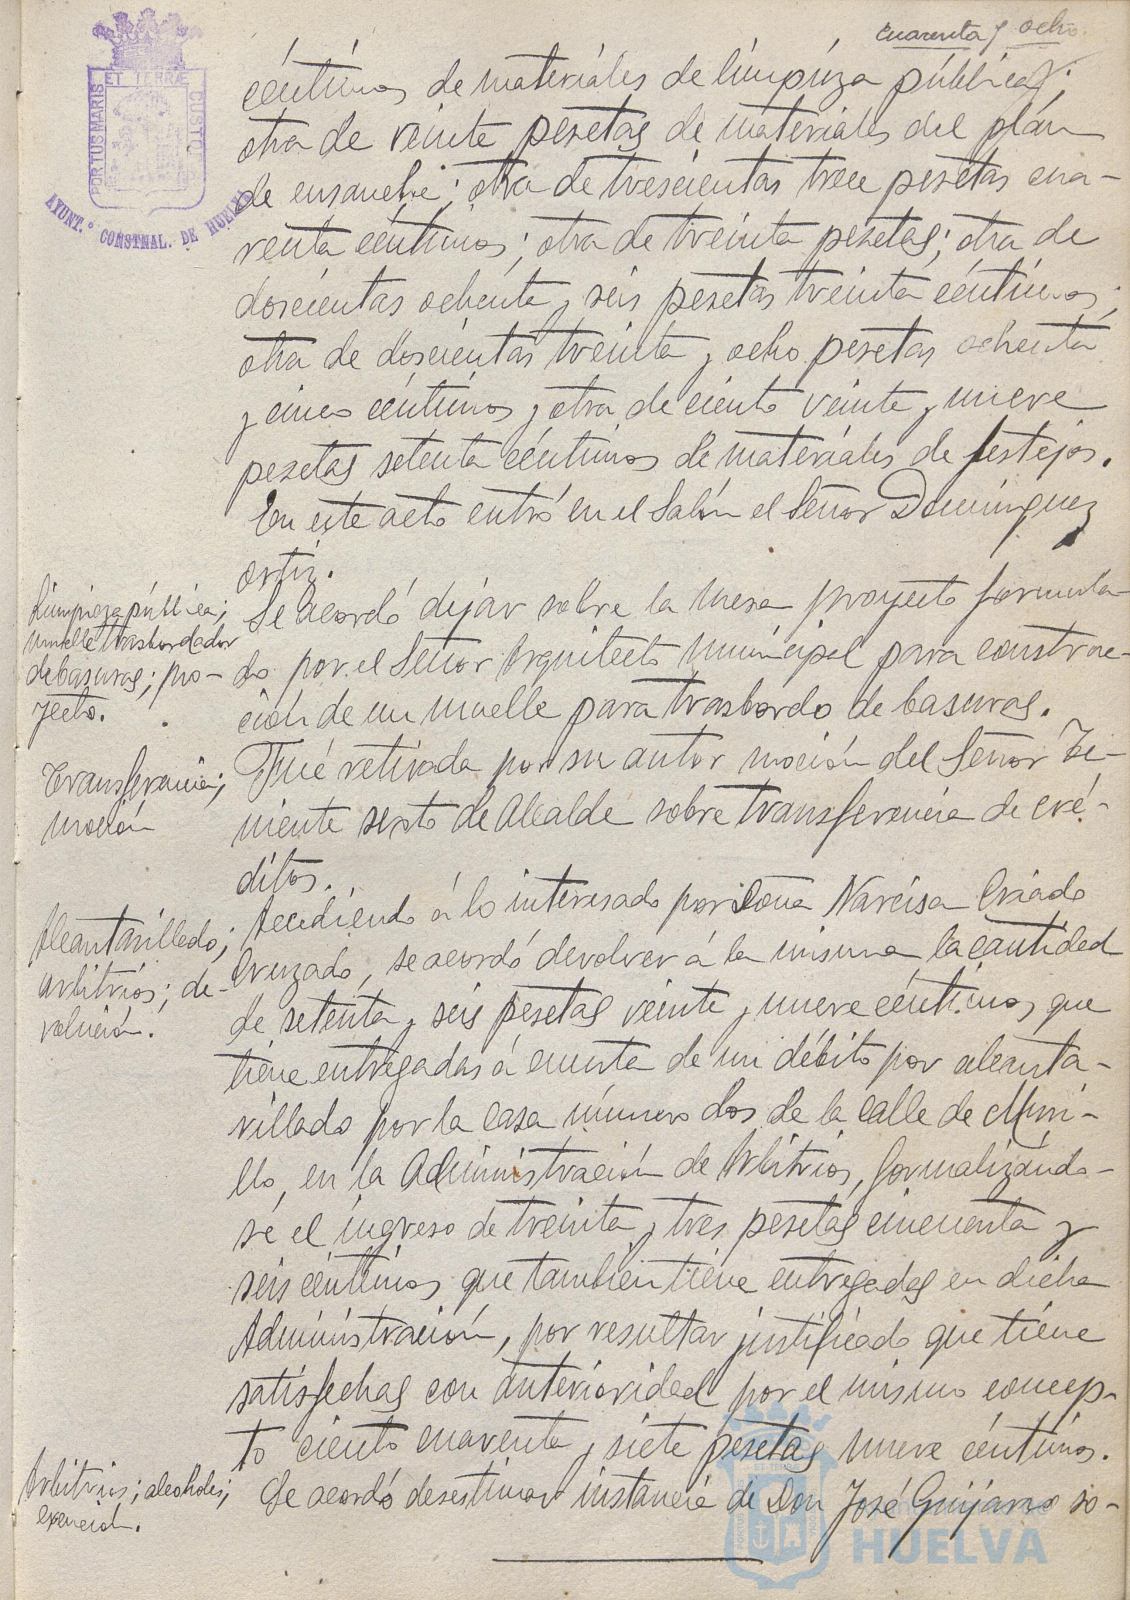 cuarenta y ocho.
ET TERRÆ
PORTUS MARIS
CUSTO
AYUNT.º CONSTNAL. DE HUELVA
céntimos de materiales de limpieza pública;
otra de veinte pesetas de materiales del plan
de ensanche; otra de trescientas trece pesetas cua-
renta céntimos; otra de treinta pesetas; otra de
doscientas ochenta y seis pesetas treinta céntimos;
otra de doscientas treinta y ocho pesetas ochenta
y cinco céntimos y otra de ciento veinte y nueve
pesetas setenta céntimos de materiales de festejos.
En este acto entró en el Salón el Señor Domínguez
Ortiz.
Limpieza pública;
muelle trasbordador
de basuras; pro-
yecto.
Se acordó dejar sobre la mesa proyecto formula-
do por el Señor Arquitecto Municipal para construc-
ción de un muelle para trasbordo de basuras.
Transferencia;
moción
Fué retirada por su autor moción del Señor Te-
niente sexto de Alcalde sobre transferencia de cré-
ditos.
Alcantarillado;
arbitrios; de-
volución.
Accediendo á lo interesado por Doña Narcisa Criado
Cruzado, se acordó devolver á la misma la cantidad
de setenta y seis pesetas veinte y nueve céntimos que
tiene entregadas á cuenta de un débito por alcanta-
rillado por la casa número dos de la calle de Muri-
llo, en la Administración de Arbitrios, formalizándo-
se el ingreso de treinta y tres pesetas cincuenta y
seis céntimos que también tiene entregadas en dicha
Administración, por resultar justificado que tiene
satisfechas con anterioridad por el mismo concep-
to ciento cuarenta y siete pesetas nueve céntimos.
Arbitrios; alcoholes;
exención.
Se acordó desestimar instancia de Don José Guijarro so-
HUELVA